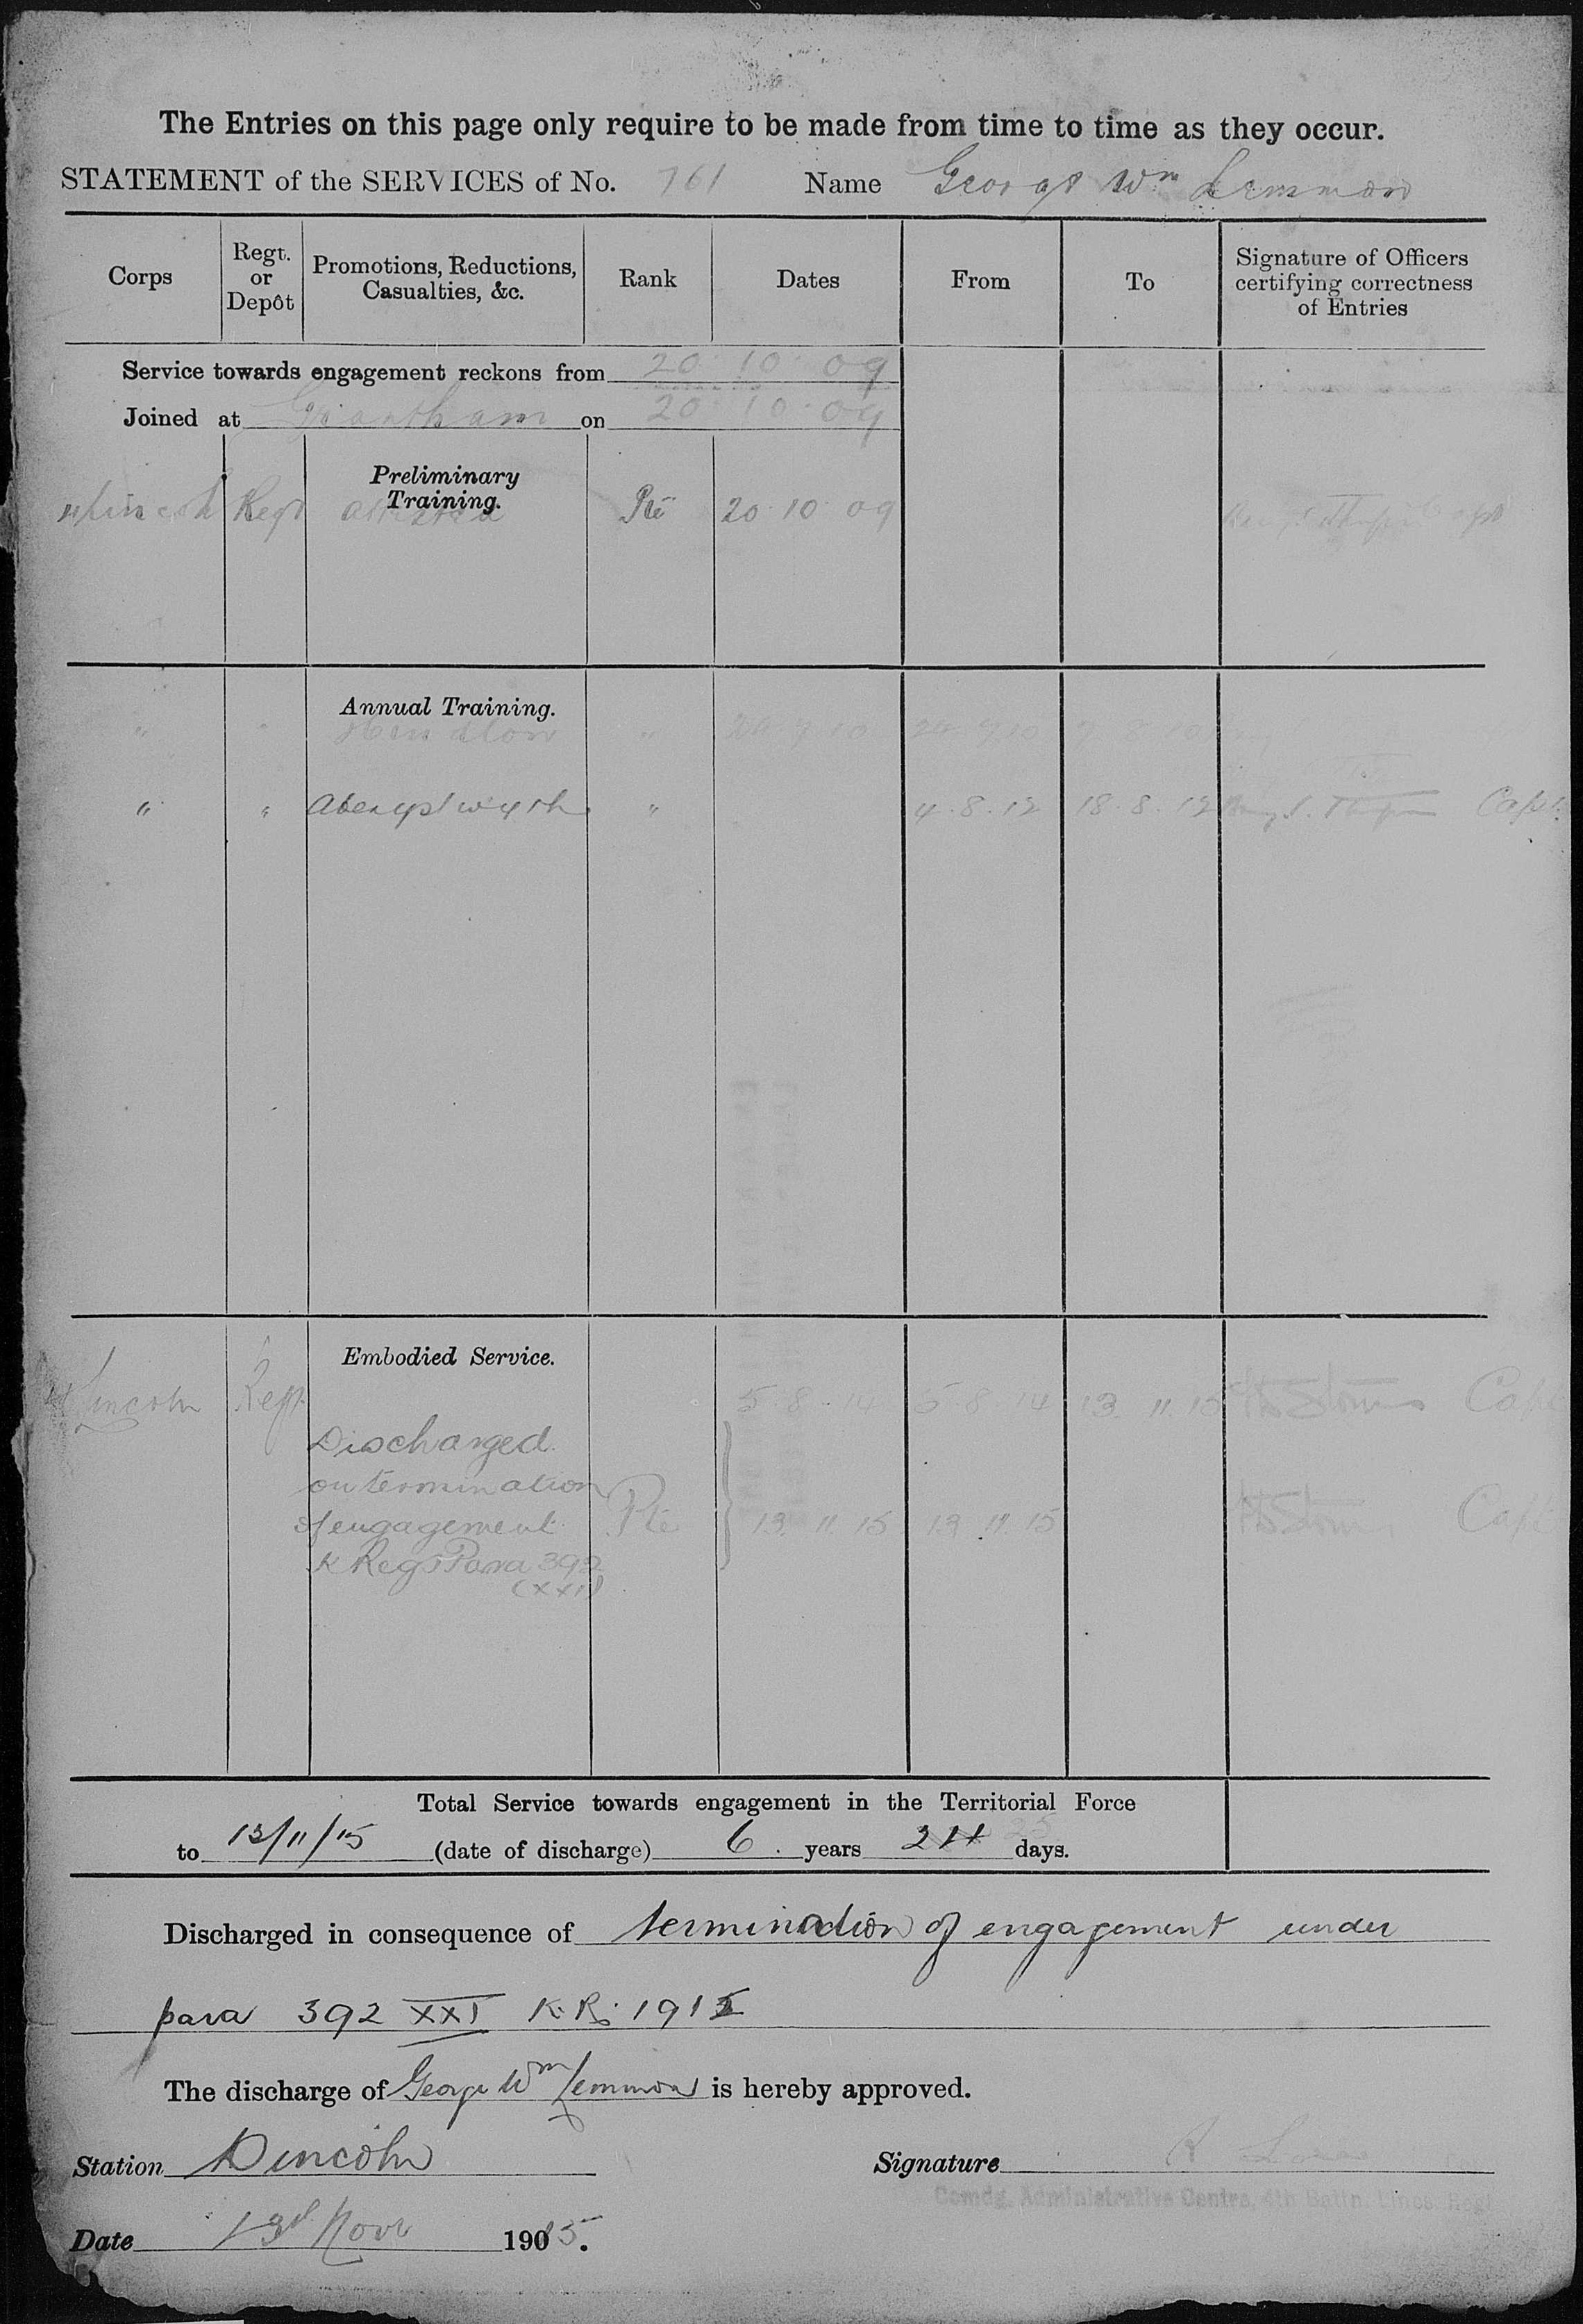 The Entries on this page only require to be made from time to time as they occur.
STATEMENT of the SERVICES of No. 761 Name George Wm Lemmon
Corps Regt. or Depôt Promotions, Reductions, Casualties, &c. Rank Dates From To Signature of Officers certifying correctness of Entries
Service towards engagement reckons from 20 10 09
Joined at Grantham on 20 10 09
Preliminary
Training.
Lincoln Regt attested Pte 20 10 09 Capt
Annual Training.
" " "
" " Aberystwyth " 4.8.12 18.8.12 Capt.
Embodied Service.
Lincoln Regt 5 8 14 5 8 14 13 11 15 Capt
Discharged
on termination
of engagement Pte 13 11 15 13 11 15 Capt
K Regs Para 392
(XXI)
Total Service towards engagement in the Territorial Force
to 13/11/15 (date of discharge) 6 years days.
Discharged in consequence of termination of engagement under
para 392 XXI K.R.
The discharge of George Wm Lemmon is hereby approved.
Station Lincoln Signature
Comdg. Administrative Centre, 4th Battn. Lincs. Regt
Date 13th Novr 1905.